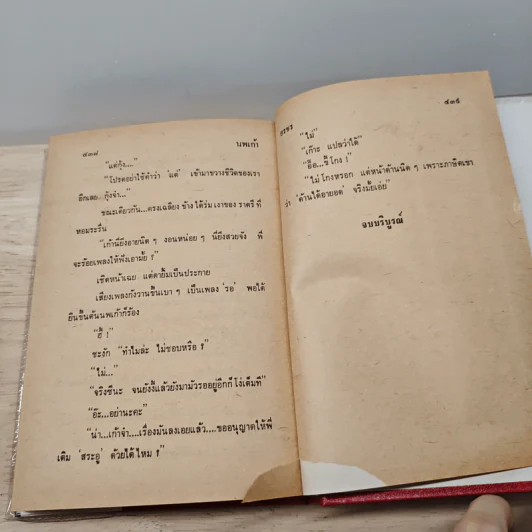 ๔๓๘ นพเก้า
“แต่กุ้ง....”
“โปรดอย่าใช้คำว่า ‘แต่’ เข้ามาขวางชีวิตของเรา
อีกเลย....กุ้งจ๋า....”
ขณะเดียวกัน....ตรงเฉลียง ข้าง ใต้ร่ม เงาของ ราตรี ที่
หอมระรื่น
“เก้านี่ยิ่งอายนิด ๆ งอนหน่อย ๆ นี่ยิ่งสวยจัง พี่
จะร้อยเพลงให้ฟังเอามั้ย ?”
เชิดหน้าเฉย แต่ตายิ้มเป็นประกาย
เสียงเพลงกังวานขึ้นเบา ๆ เป็นเพลง ‘รอ’ พอได้
ยินขึ้นต้นนพเก้าก็ร้อง
“อี๊ !”
ชะงัก “ทำไมล่ะ ไม่ชอบหรือ ?”
“ไม่...”
“จริงซีนะ จนยังงี้แล้วยังมามัวรออยู่อีกก็โง่เต็มที”
“อ๊ะ...อย่านะคะ”
“น่า...เก้าจ๋า....เรื่องมันลงเอยแล้ว....ขออนุญาตให้พี่
เติม ‘สระอู’ ด้วยได้ไหม ?”
อรชร ๔๓๙
“ไม่”
“เก๊าะ แปลว่าได้”
“อื๊อ...ขี้โกง !”
“ไม่โกงหรอก แต่หน้าด้านนิด ๆ เพราะภาษิตเขา
ว่า ‘ด้านได้อายอด’ จริงมั้ยเอ่ย”
จบบริบูรณ์